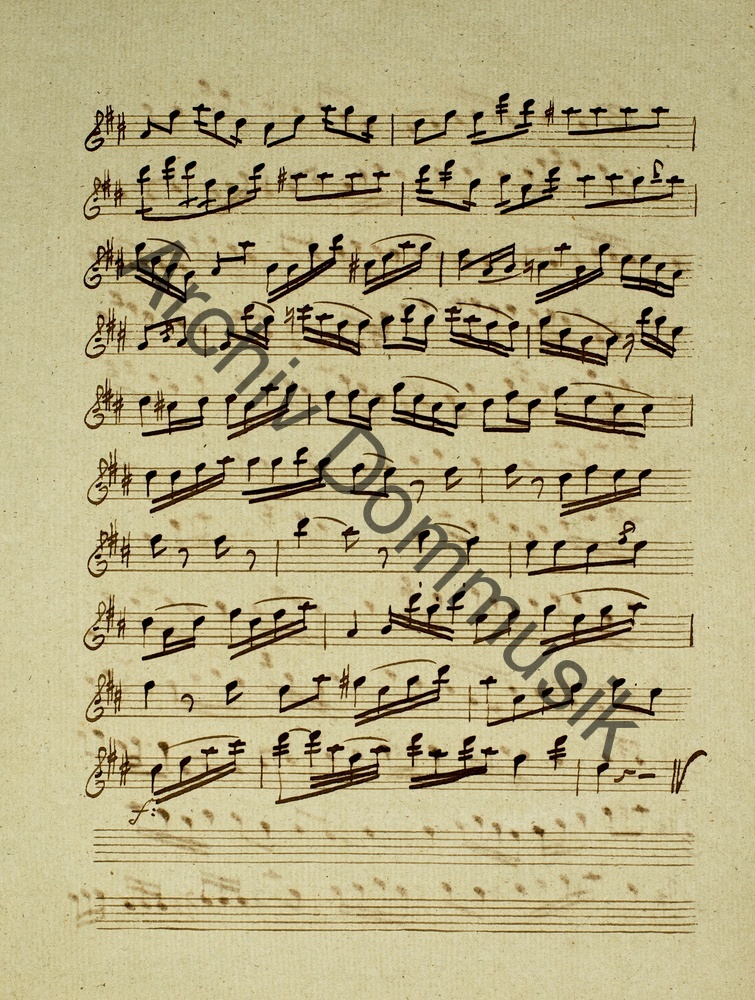 Archiv Dommusik
f: